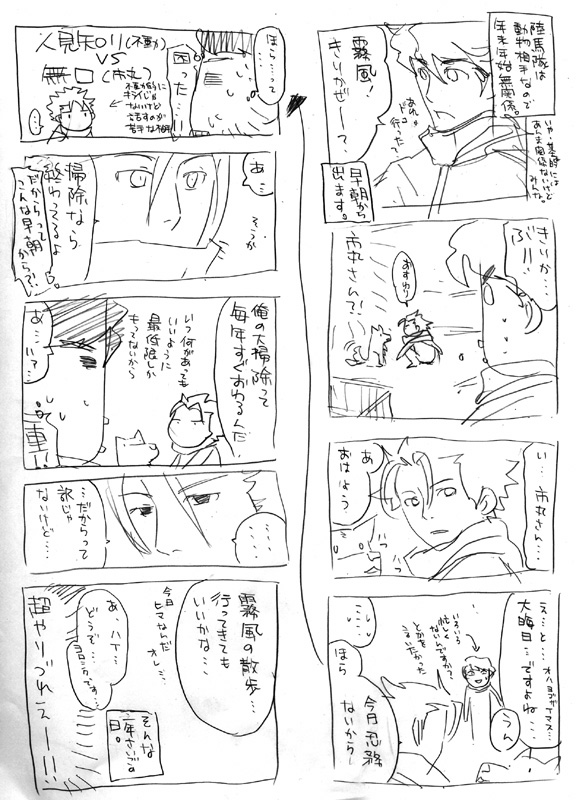 陸馬隊は
動物相手なので
年末年始無関係。
いや、基本的には
あんま関係ないけど
みんな。
霧風!
きりかぜー?
あれ?
ドコ
行った?
早朝から
出ます。
きりか…
ぶ!!
おすわり
市丸さんで!?
い…市丸さん…
あ
おはよう
ハッ
ハッ
え…と…
オハヨゴザイマス…
大晦日…ですよね…
いろいろ
忙しく
ないんですか?
とかを
言いたかった
うん
ほら
今日 忍務
ないから
ほら……って
困った…!!
人見知り(不動)
VS
無口(市丸)
不動が別に
キライじゃ
ないけど
話すのが
苦手な相手
…
あ…
そうか
掃除なら
終わってるよ
だからって
こんな早朝
から?
俺の大掃除って
毎年すぐおわるんだ
いつ何があっても
いいように
最低限しか
もってないから
あ…い?…
重い!!
……
…だからって
訳じゃ
ないけど…
霧風の散歩…
行ってきても
いいかな…
今日
ヒマなんだ
オレ…
あ、ハイ…
どうぞ…
ヨロシクです…
超やりづれえー!!!
そんな
一年さいごの
日。